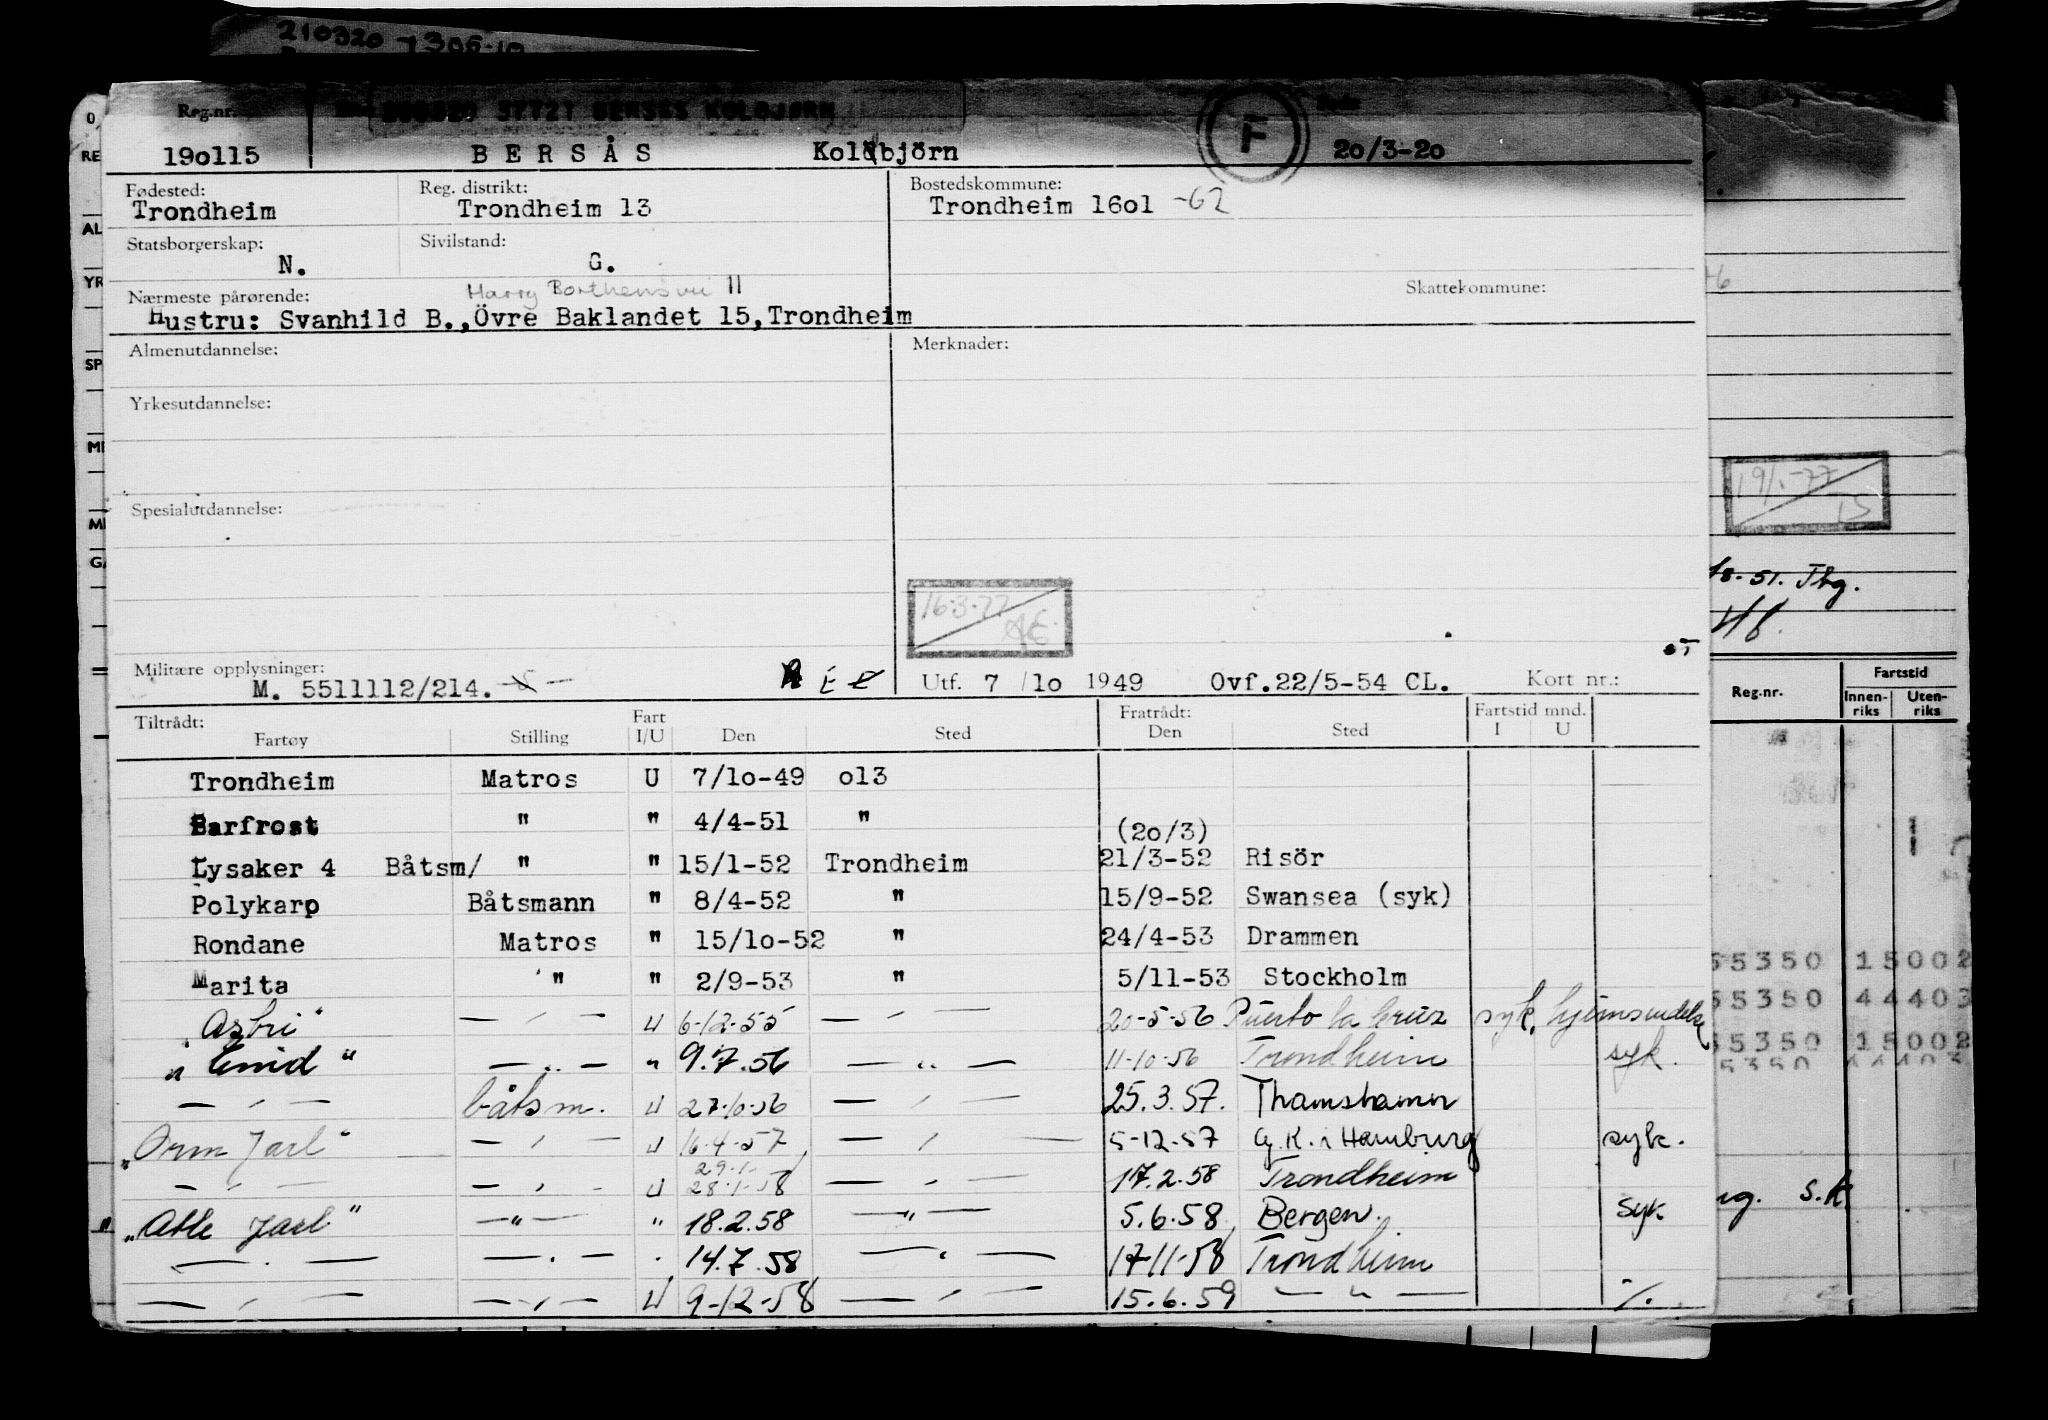 210320
Reg.nr. KOLBJØRN Født
19o115 BERSÅS Kolbjörn F 2o/3-2o
Fødested: Reg. distrikt: Bostedskommune:
Trondheim Trondheim 13 Trondheim 16o1 -62
Statsborgerskap: Sivilstand:
N. G.
Nærmeste pårørende: Harry Borthensvei 11 Skattekommune:
Hustru: Svanhild B.,Övre Baklandet 15,Trondheim
Almenutdannelse: Merknader:
Yrkesutdannelse:
Spesialutdannelse:
19/1-77
15
16-3-77
18-51. Thg.
Militære opplysninger:
M. 5511112/214. Utf. 7 /1o 1949 Ovf.22/5-54 CL. Kort nr.:
Tiltrådt: Fart Fratrådt: Fartstid mnd.
Fartøy Stilling I/U Den Sted Den Sted I U
Reg.nr. Fartstid
Innen-riks Uten-riks
Trondheim Matros U 7/1o-49 o13
Barfrost " " 4/4-51 " (2o/3)
Lysaker 4 Båtsm/ " " 15/1-52 Trondheim 21/3-52 Risör
Polykarp Båtsmann " 8/4-52 " 15/9-52 Swansea (syk)
Rondane Matros " 15/1o-52 " 24/4-53 Drammen
Marita " " 2/9-53 " 5/11-53 Stockholm
"Asbri" — " — U 6-12-55 — " — 20-5-56 Puerto la Cruz syk, hjemsendelse
"Enid" — " — " 9.7.56 — " — 11-10-56 Trondheim syk.
— " — båtsm. U 27-10-56 — " — 25.3.57. Thamshamn
"Orm Jarl" — " — U 16-4-57 — " — 5-12-57 G.K. i Hamburg syk.
29-1-
— " — — " — U 28-1-58 — " — 17.2.58 Trondheim
"Atle Jarl" — " — " 18.2.58 — " — 5.6.58 Bergen. syk
— " — — " — " 14.7.58 — " — 17-11-58 Trondheim
— " — — " — U 9-12-58 — " — 15.6.59 — " — %.
55350 15002
55350 44403
55350 15002
5350 44403